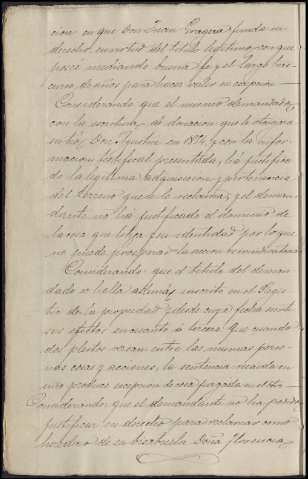 cion en que Don Juan Gragera funda su
derecho en virtud del título legítimo con que
posee mediando buena fé y el largo tras-
curso de años para hacer valer su escepcion =
Considerando que el mismo demandado,
con la escritura de donacion que le otorgara
su tio, Don Agustin en 1874, y con la infor-
macion testifical presentada, ha justifica
do la legítima adquisicion y pertenencia
del terreno que se le reclama, y el deman
dante no ha justificado el dominio de
la cosa que litiga ni su identidad por lo que
no puede prosperar la accion reivindicatoria
Considerando que el título del deman
dado se halla además inscrito en el Regis
tro de la propiedad y desde cuya fecha surte
sus efectos en cuanto á tercero. Que cuando
dos pleitos versan entre las mismas perso-
nas cosas y acciones, la sentencia recaida en
uno produce escepcion de cosa juzgada en el otro =
Considerando que el demandante no ha podido
justificar su derecho para reclamar como
heredero de su bisabuela Doña Florencia,